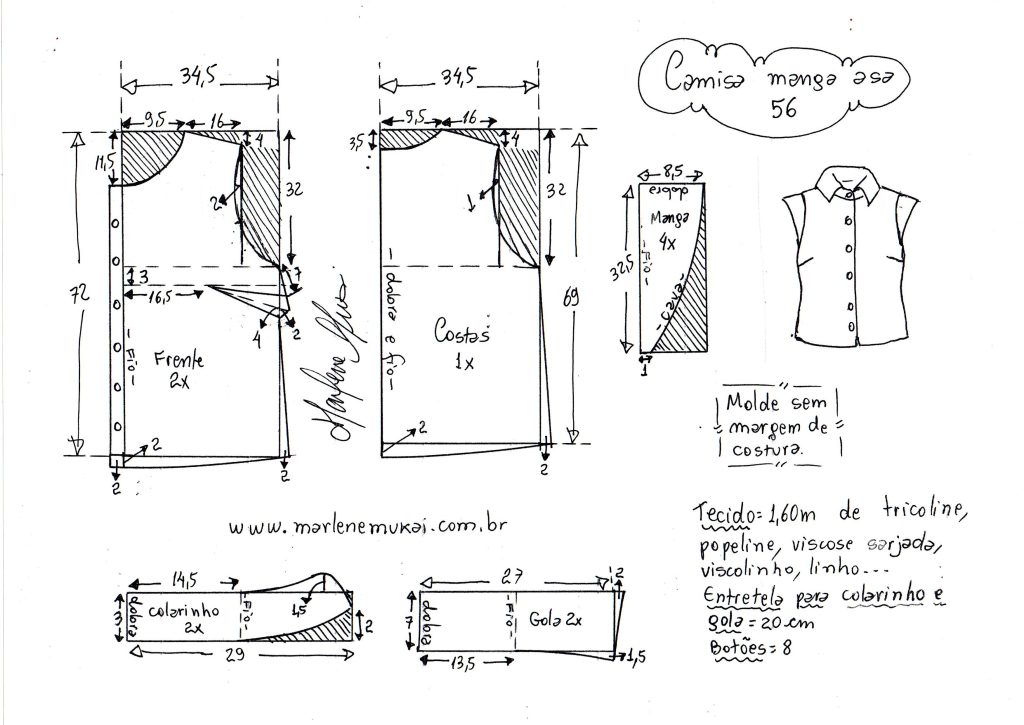 Camisa manga asa
56
34,5
9,5
16
11,5
4
32
2
3
16,5
7
4
2
72
Fio
Frente
2x
2
2
2
34,5
9,5
16
3,5
4
32
1
dobra e fio
69
Costas
1x
2
2
Marlene Mukai
8,5
dobra
Manga
4x
Fio
cava
32,5
1
Molde sem
margem de
costura.
www.marlenemukai.com.br
Tecido = 1,60m de tricoline,
popeline, viscose sarjada,
viscolinho, linho...
Entretela para colarinho e
gola = 20 cm
Botões = 8
14,5
3
dobra
colarinho
2x
Fio
1,5
2
29
27
2
7
dobra
Fio
Gola 2x
13,5
1,5